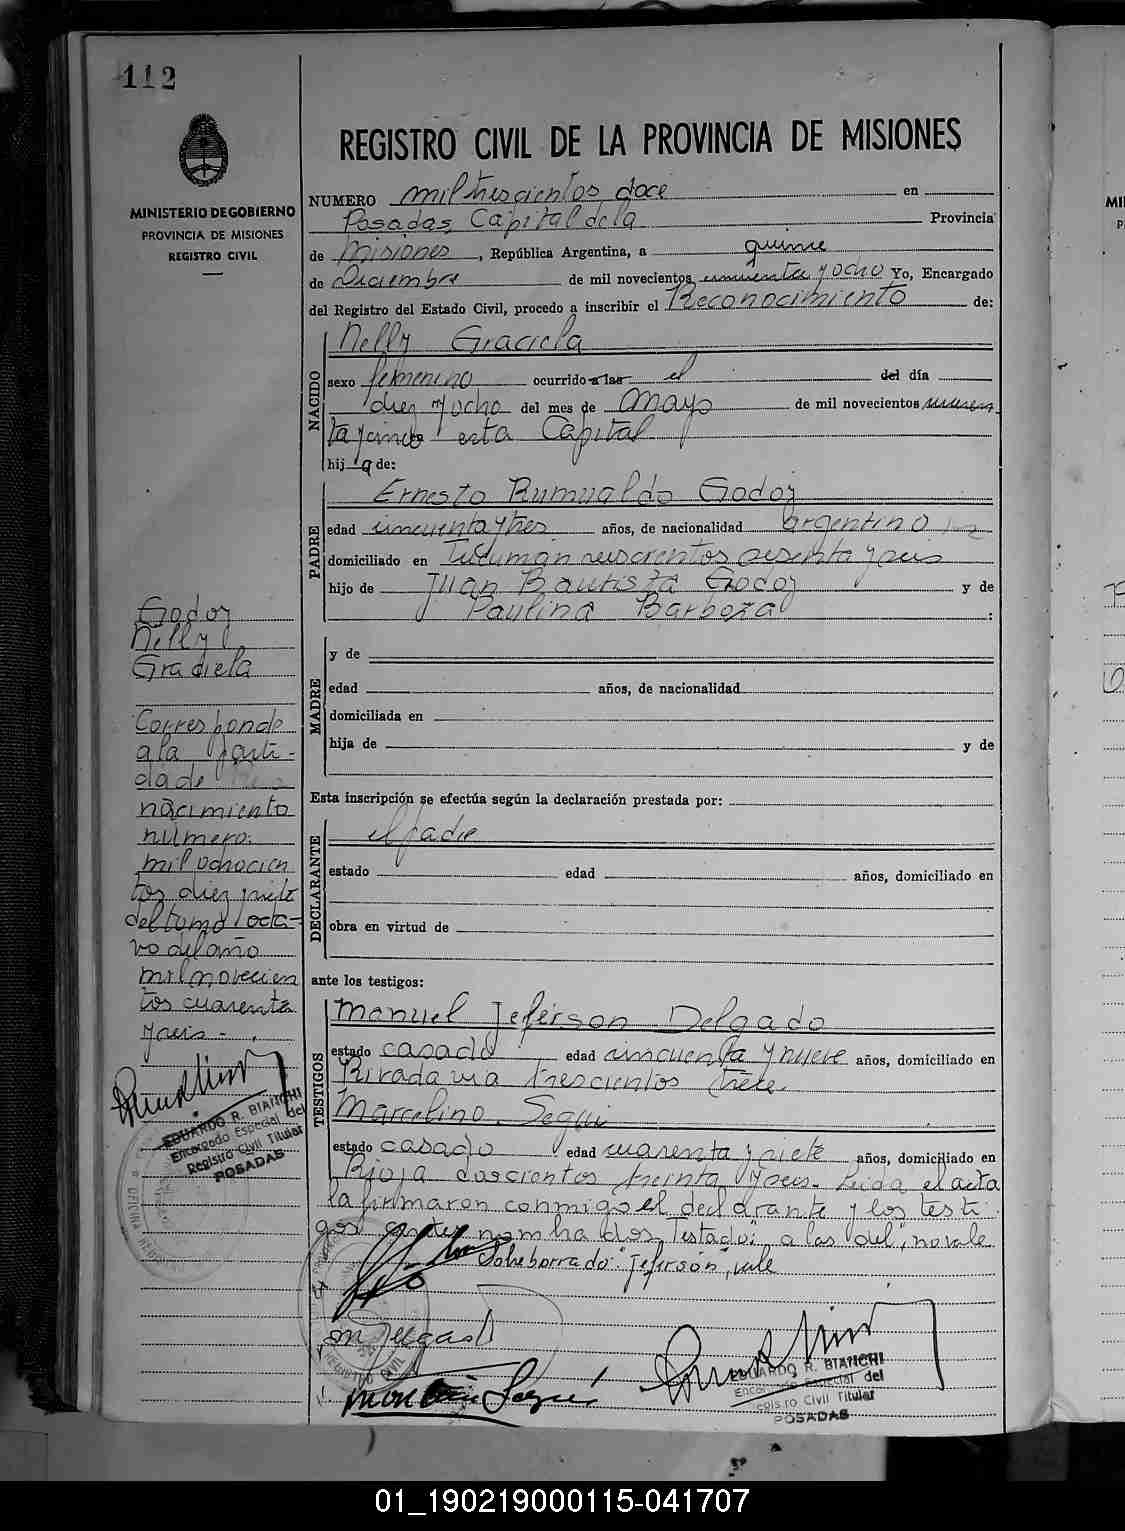 112
MINISTERIO DE GOBIERNO
PROVINCIA DE MISIONES
REGISTRO CIVIL
REGISTRO CIVIL DE LA PROVINCIA DE MISIONES
NUMERO mil trescientos doce en
Posadas, Capital de la Provincia
de Misiones, República Argentina, a quince
de Diciembre de mil novecientos cincuenta y ocho Yo, Encargado
del Registro del Estado Civil, procedo a inscribir el Reconocimiento de:
NACIDO
Nelly Graciela
sexo femenino ocurrido a las el del día
diez y ocho del mes de Mayo de mil novecientos
ta y cinco esta Capital
hija de:
PADRE
Ernesto Rumualdo Godoy
edad cincuenta y tres años, de nacionalidad argentino
domiciliado en Tucumán seiscientos sesenta y seis
hijo de Juan Bautista Godoy y de
Paulina Barboza :
MADRE
y de
edad años, de nacionalidad
domiciliada en
hija de y de
Esta inscripción se efectúa según la declaración prestada por:
DECLARANTE
el padre
estado edad años, domiciliado en
obra en virtud de
ante los testigos:
TESTIGOS
Manuel Jeferson Delgado
estado casado edad cincuenta y nueve años, domiciliado en
Rivadavia trescientos trece.
Marcelino Segui
estado casado edad cuarenta y siete años, domiciliado en
Rioja doscientos treinta y seis. Leida el acta
la firmaron conmigo el declarante y los testi
gos antes nombrados. Testado: "a las del", no vale
Sobreborrado "Jeferson", vale
Godoy
Nelly
Graciela
Corresponde
a la parti-
da de
nacimiento
número:
mil ochocien
tos diez y siete
del tomo octa-
vo del año
mil novecien
tos cuarenta
y seis.-
EDUARDO R. BIANCHI
Encargado Especial del
Registro Civil Titular
POSADAS
M Delgado
Marcelino Segui
EDUARDO R. BIANCHI
Encargado Especial del
Registro Civil Titular
POSADAS
REGISTRO CIVIL
01_190219000115-041707